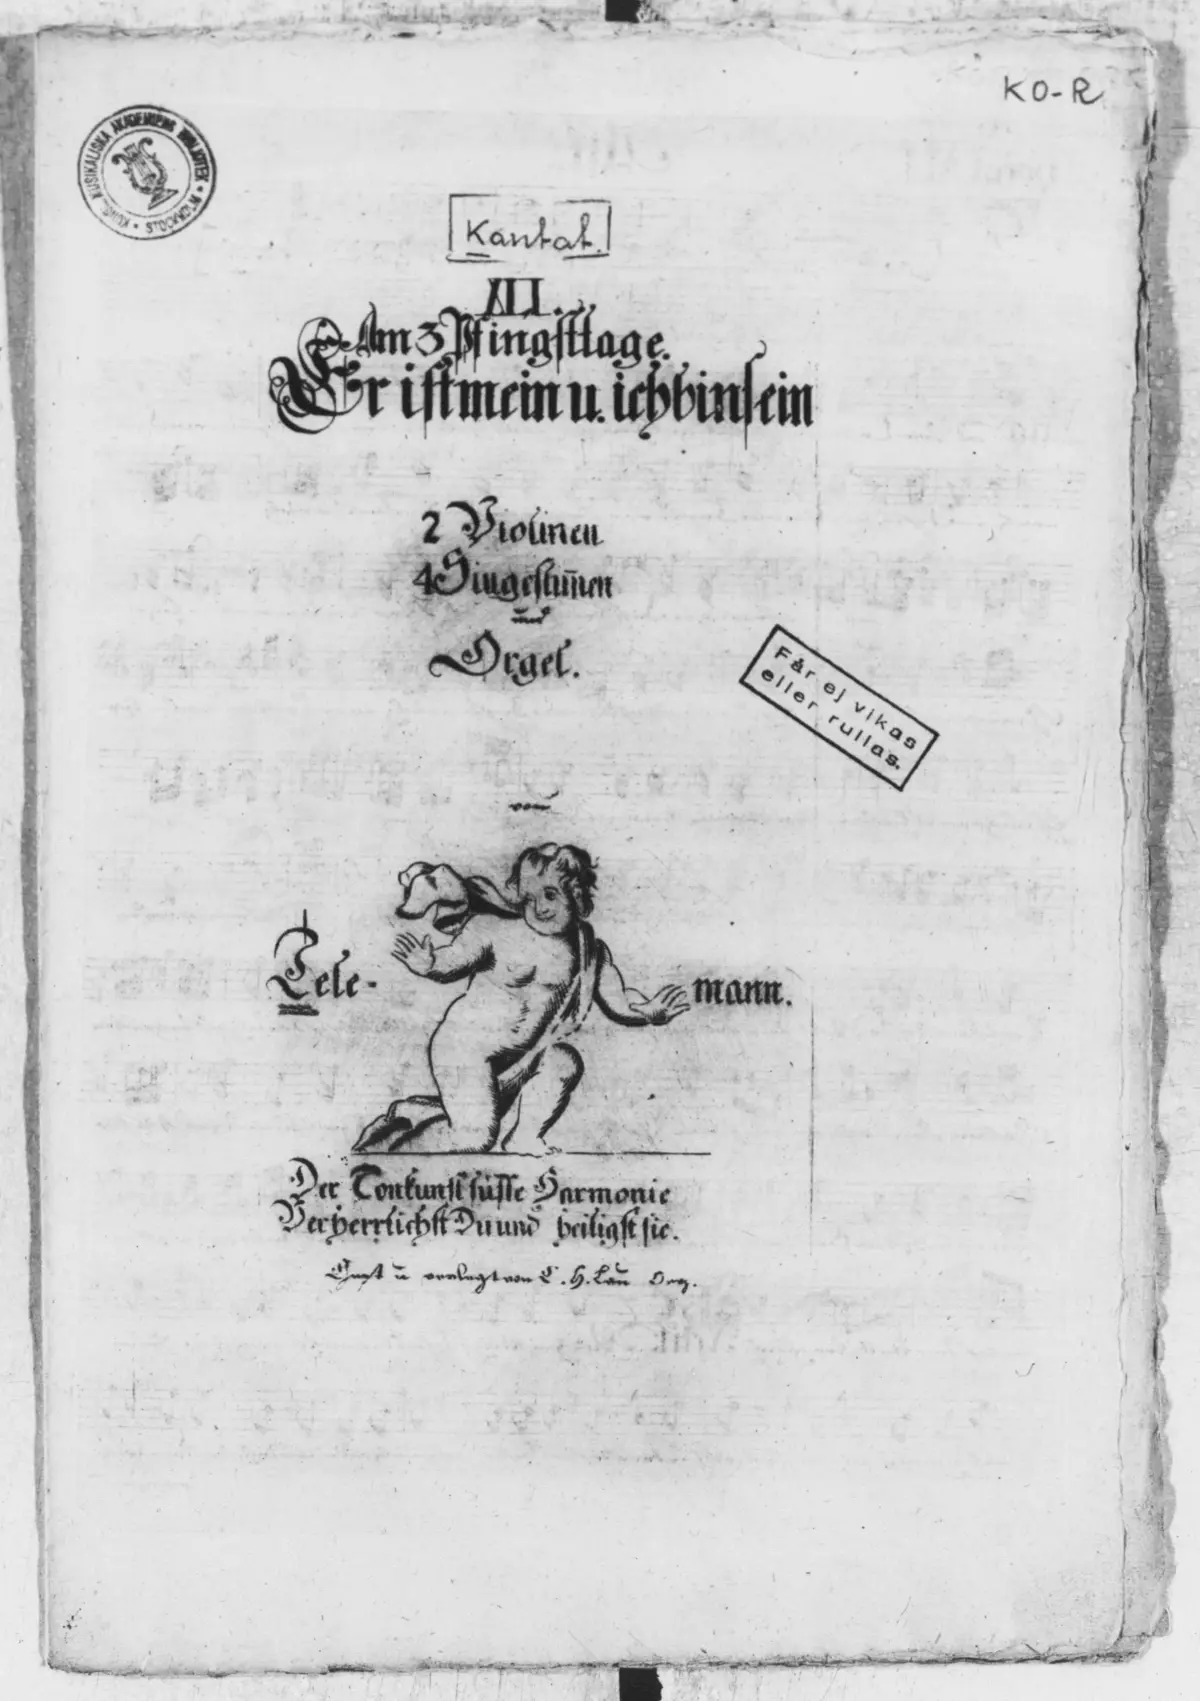 KO-R
KUNGL. MUSIKALISKA AKADEMIENS BIBLIOTEK • STOCKHOLM •
Kantat.
XII.
Am 3 Pfingsttage.
Er ist mein u. ich bin sein
2 Violinen
4 Singestim̅en
und
Orgel.
Får ej vikas
eller rullas.
von
Tele-
mann.
Der Tonkunst süsse Harmonie
Verherrlichst Du und heiligst sie.
u verlegt von C. H. Lau Org.